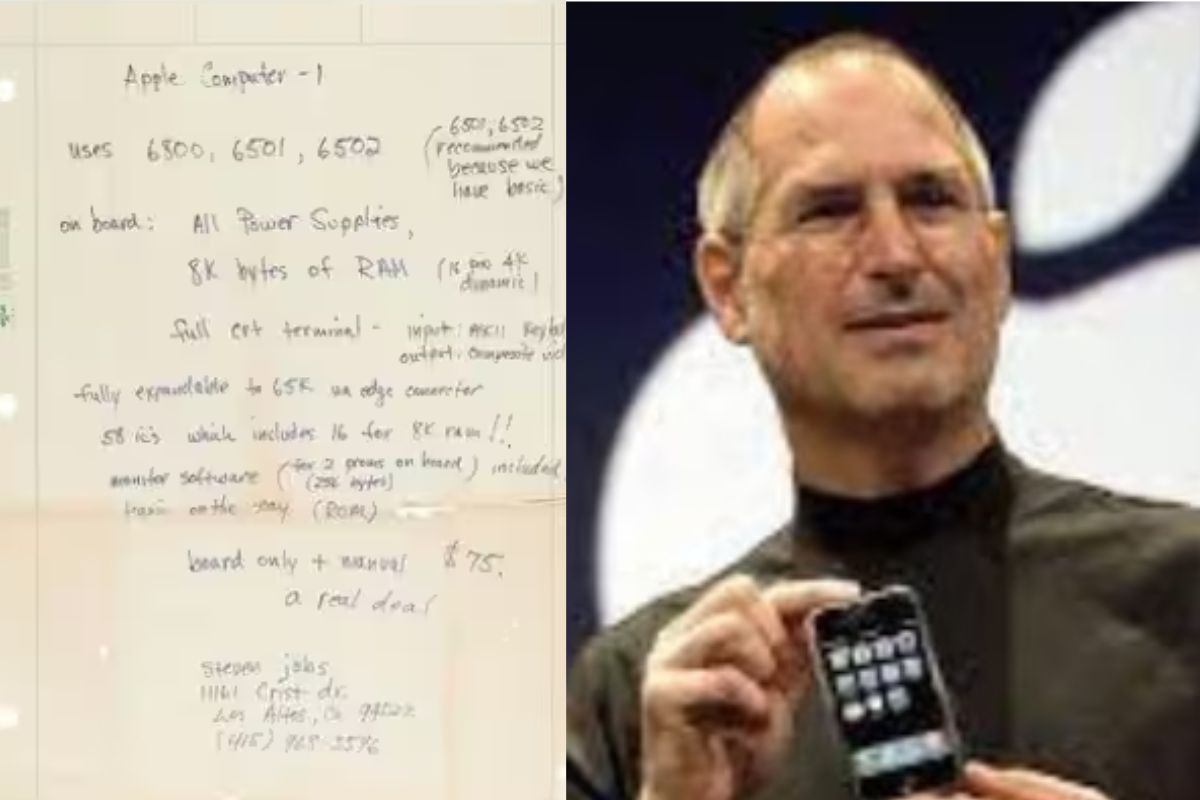 Apple Computer - 1
uses 6800, 6501, 6502
(6501, 6502
recommended
because we
have basic)
on board: All Power Supplies,
8K bytes of RAM (16 pin 4K
dynamic)
full crt terminal - input: ASCII Keybo
output: composite vid
fully expandable to 65K via edge connector
58 ic's which includes 16 for 8K ram!!
monitor software (for 2 proms on board) included
(256 bytes)
basic on the way (ROM)
board only + manual $75.
a real deal
steven jobs
11161 Crist dr.
Los Altos, Ca 94022
(415) 968-3596